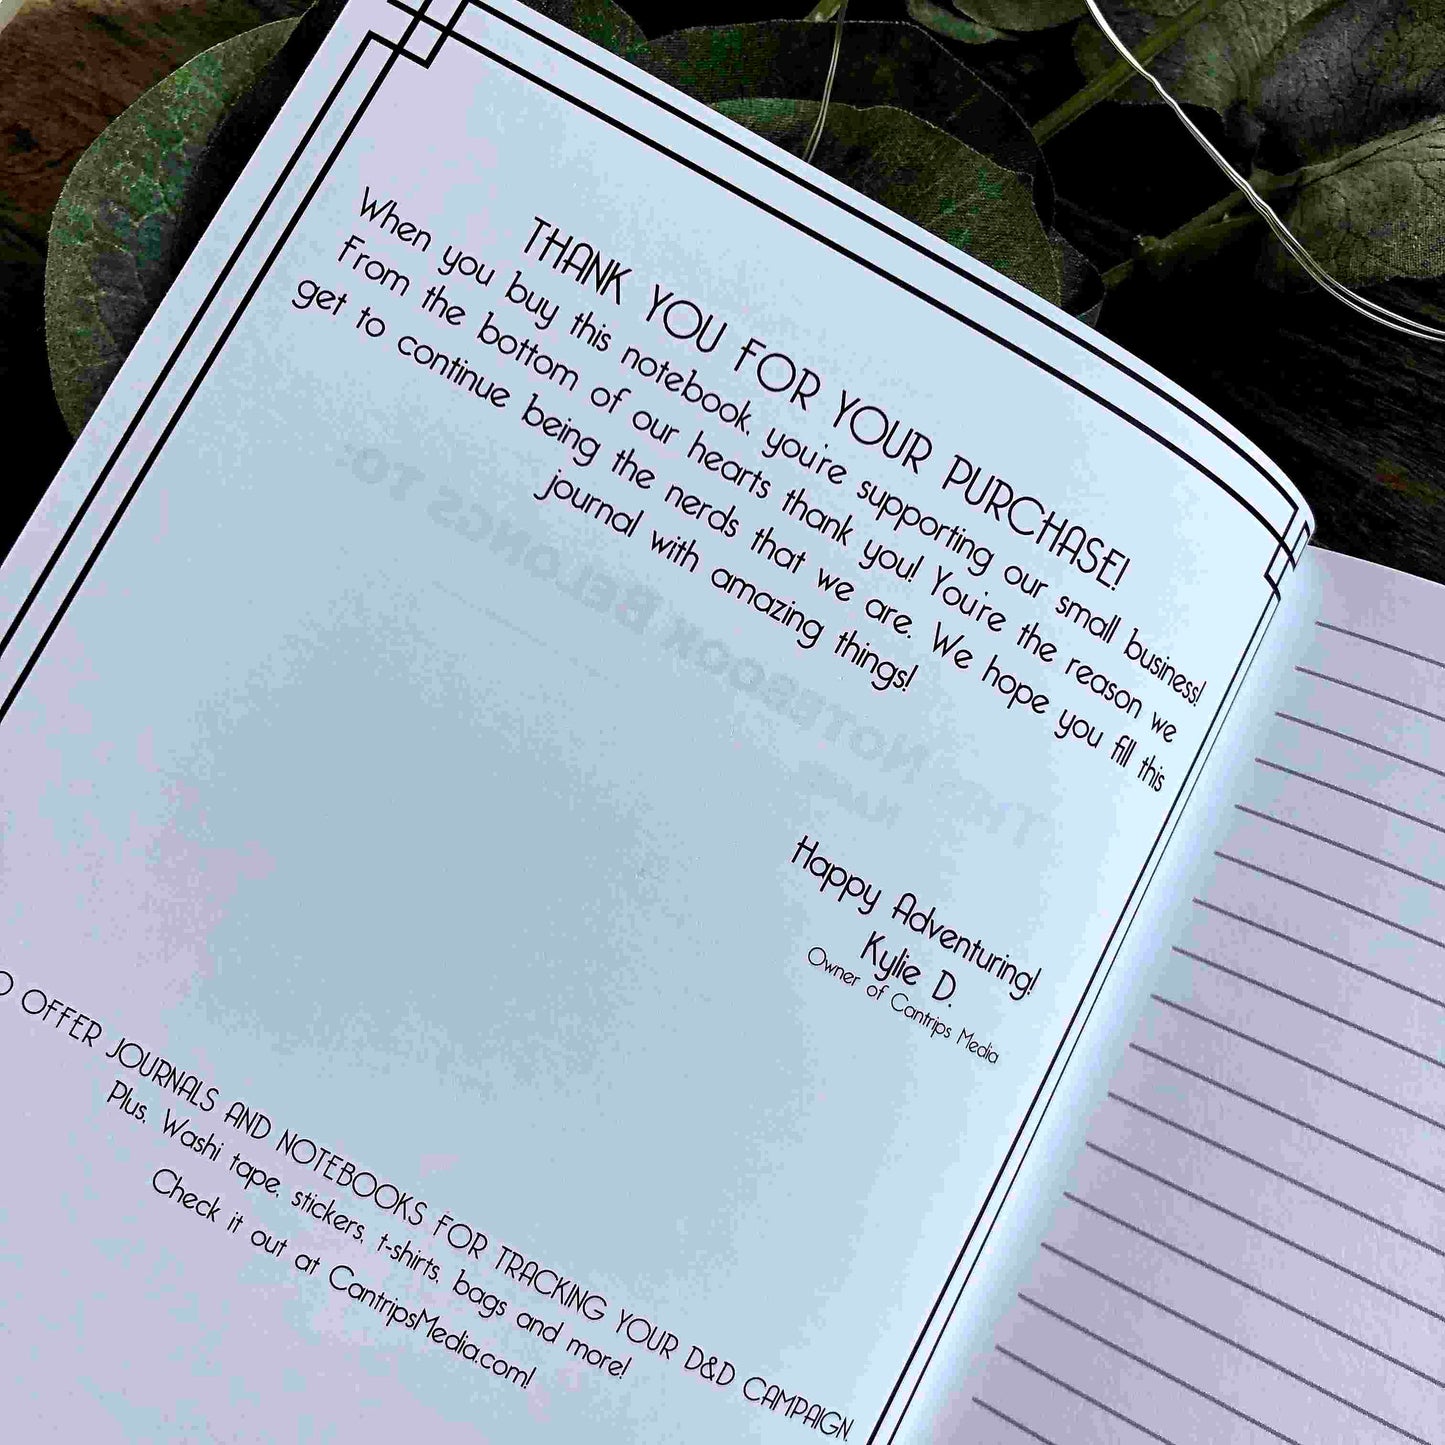 THANK YOU FOR YOUR PURCHASE!
When you buy this notebook, you're supporting our small business!
From the bottom of our hearts thank you! You're the reason we
get to continue being the nerds that we are. We hope you fill this
journal with amazing things!
Happy Adventuring!
Kylie D.
Owner of Cantrips Media
OFFER JOURNALS AND NOTEBOOKS FOR TRACKING YOUR D&D CAMPAIGN.
Plus, Washi tape, stickers, t-shirts, bags and more!
Check it out at CantripsMedia.com!